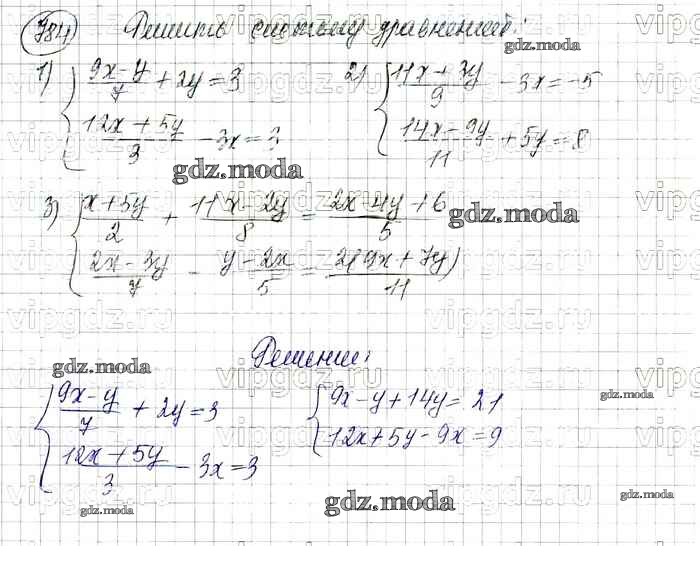 784 Решить систему уравнений:
1) { (9x-y)/7 + 2y = 3
(12x+5y)/3 - 3x = 3
2) { (11x+3y)/9 - 3x = -5
(14x-9y)/11 + 5y = 8
gdz.moda
3) { (x+5y)/2 + (11x-2y)/8 = (2x-4y+6)/5
(2x-3y)/7 - (y-2x)/5 = 2(9x+7y)/11
gdz.moda
Решение:
gdz.moda
{ (9x-y)/7 + 2y = 3
(12x+5y)/3 - 3x = 3
{ 9x-y+14y = 21
12x+5y-9x = 9
gdz.moda
gdz.moda
gdz.moda
gdz.moda
vipgdz.ru